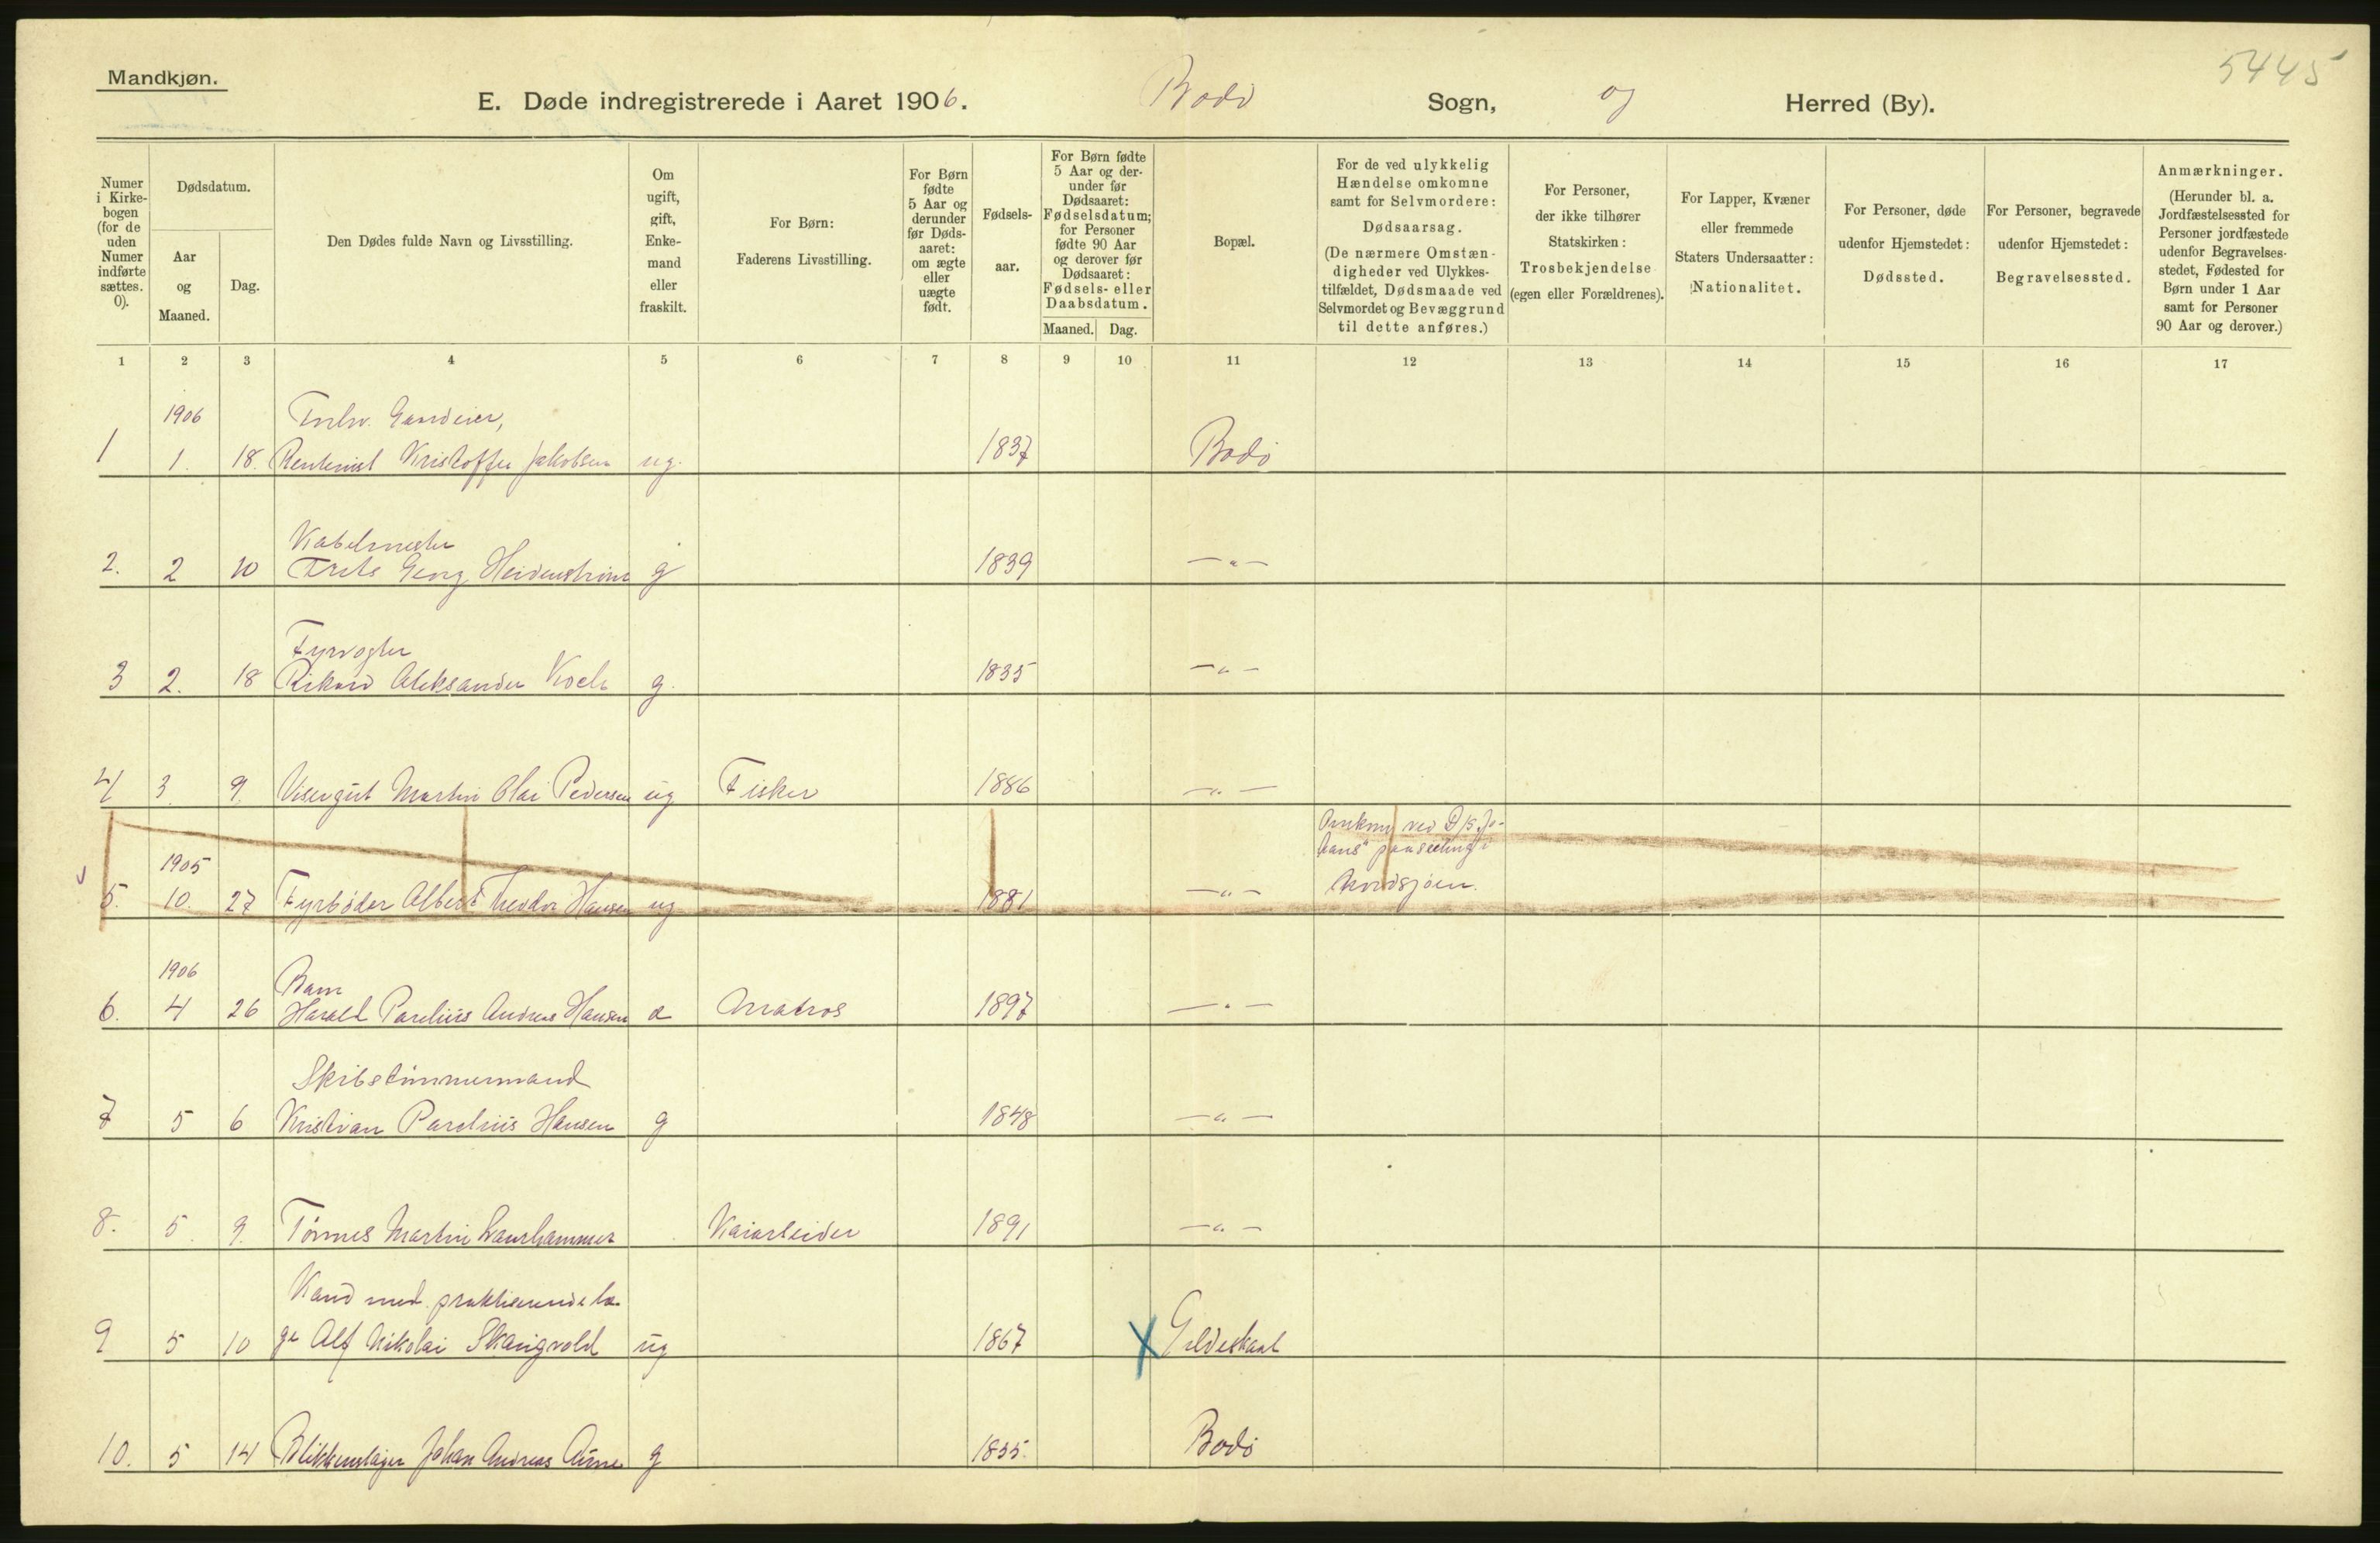 Mandkjøn.
5445
E. Døde indregistrerede i Aaret 1906. Bodø Sogn, og Herred (By).
Numer i Kirkebogen (for de uden Numer indførte sættes. 0).
Dødsdatum.
Aar og Maaned.
Dag.
Den Dødes fulde Navn og Livsstilling.
Om ugift, gift, Enkemand eller fraskilt.
For Børn: Faderens Livsstilling.
For Børn fødte 5 Aar og derunder før Dødsaaret: om ægte eller uægte født.
Fødselsaar.
For Børn fødte 5 Aar og derunder før Dødsaaret: Fødselsdatum; for Personer fødte 90 Aar og derover før Dødsaaret: Fødsels- eller Daabsdatum.
Maaned. Dag.
Bopæl.
For de ved ulykkelig Hændelse omkomne samt for Selvmordere: Dødsaarsag. (De nærmere Omstændigheder ved Ulykkestilfældet, Dødsmaade ved Selvmordet og Bevæggrund til dette anføres.)
For Personer, der ikke tilhører Statskirken: Trosbekjendelse (egen eller Forældrenes).
For Lapper, Kvæner eller fremmede Staters Undersaatter: Nationalitet.
For Personer, døde udenfor Hjemstedet: Dødssted.
For Personer, begravede udenfor Hjemstedet: Begravelsessted.
Anmærkninger. (Herunder bl. a. Jordfæstelsessted for Personer jordfæstede udenfor Begravelsesstedet, Fødested for Børn under 1 Aar samt for Personer 90 Aar og derover.)
1 2 3 4 5 6 7 8 9 10 11 12 13 14 15 16 17
1906
1 1. 18. Rentenist Kristoffer Jakobsen ug. 1837 Bodø
Kabelmester
2. 2 10 Frits Georg g 1839 —"—
Fyrvogter
3 2. 18 Rikard Aleksander Koch g. 1835 —"—
4 3. 9. Visergut Martin Olai Pedersen ug Fisker 1886 —"—
1905
5. 10. 27 Fyrbøder Albert Theodor Hansen ug 1881 —"— Omkom ved D/S
Nordsjøen.
1906
Barn
6. 4 26 Harald Parelius Andreas Hansen Matros 1897 —"—
Skibstømmermand
7 5 6 Kristian Parelius Hansen g 1848 —"—
8. 5. 9. Tønnes Martin Kaiarbeider 1891 —"—
Kand med. praktiserende læ
9 5 10 ge Alf Nikolai ug 1867 X Gildeskaal
10. 5 14 Blikkenslager Johan Andreas Aune g 1835. Bodø